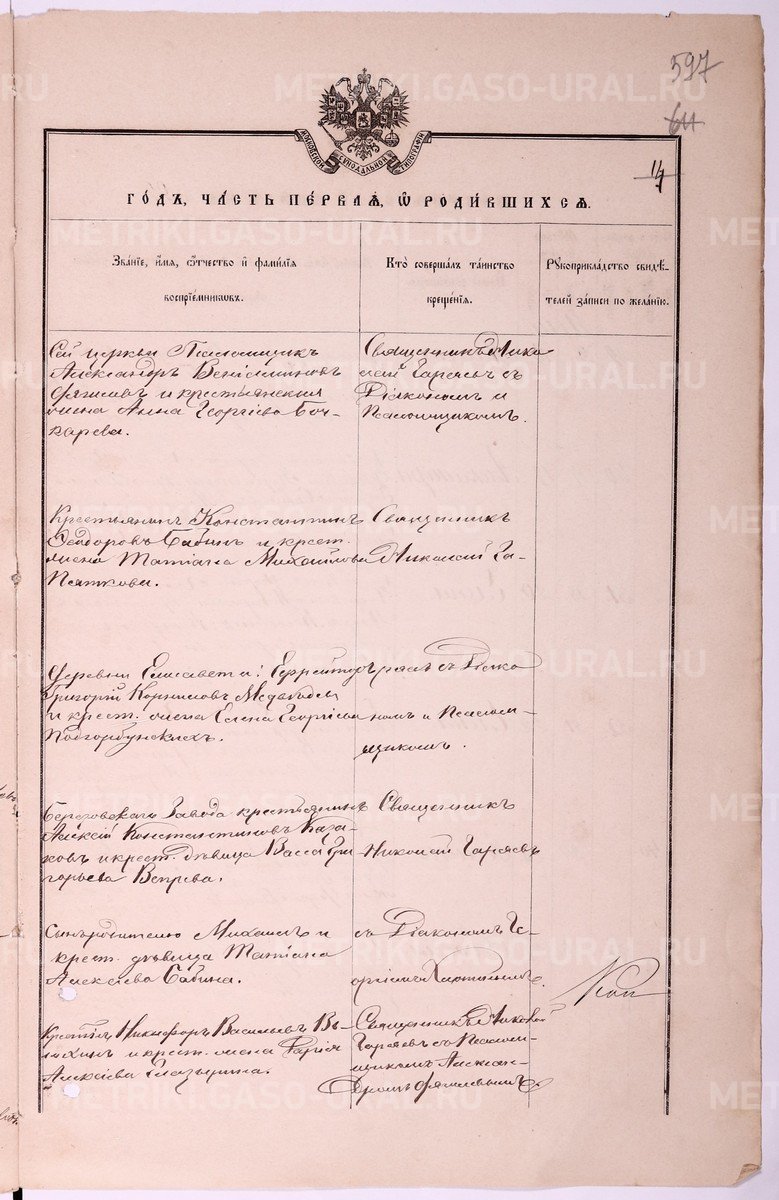 597
611
14
МОСКОВСКОЙ СѴНОДАЛЬНОЙ ТИПОГРАФІИ
ГО́ДЪ, ЧА́СТЬ ПЕ́РВАЯ, Ѽ РОДИ́ВШИХСЯ.
Зва́нїе, и́мя, ѻ́тчество и҆ фами́лїя
воспрїе́мниковъ.
Кто̀ соверша́лъ та́инство
креще́нїя.
Рꙋкоприкла́дство свидѣ́-
телей за́писи по жела́нїю.
Сей церкви Псаломщикъ
Александръ Веніаминовъ
и крестьянская
жена Анна Георгіева Боч-
карева.
Священникъ Нико
лай Гаряевъ съ
Діакономъ и
Псаломщикомъ.
Крестьянинъ Константинъ
Ѳеодоровъ Бабинъ и крест.
жена Татіана Михайлова
Пяткова.
Священникъ
Николай Га-
Деревни Елисавета: Еффрейторъ
Григорій Корниловъ Медвѣдев
и крест. жена Елена Георгіева
Подгорбунскихъ.
ряевъ съ Діако
номъ и Псалом-
щикомъ.
Березовскаго Завода крестьянинъ
Алексій Константиновъ Каза-
ковъ и крест. дѣвица Васса Гри
горьева Вепрева.
Священникъ
Николай Гаряевъ
Сынъ родителю Михаилъ и
крест. дѣвица Татіана
Алексіева Бабина.
съ Діакономъ Ге-
оргіемъ
Крест. Никифоръ Васильевъ
и крест. жена Дарія
Алексіева Глазырина.
Священникъ Николай
Гаряевъ съ Псалом-
щикомъ Алексан-
дромъ